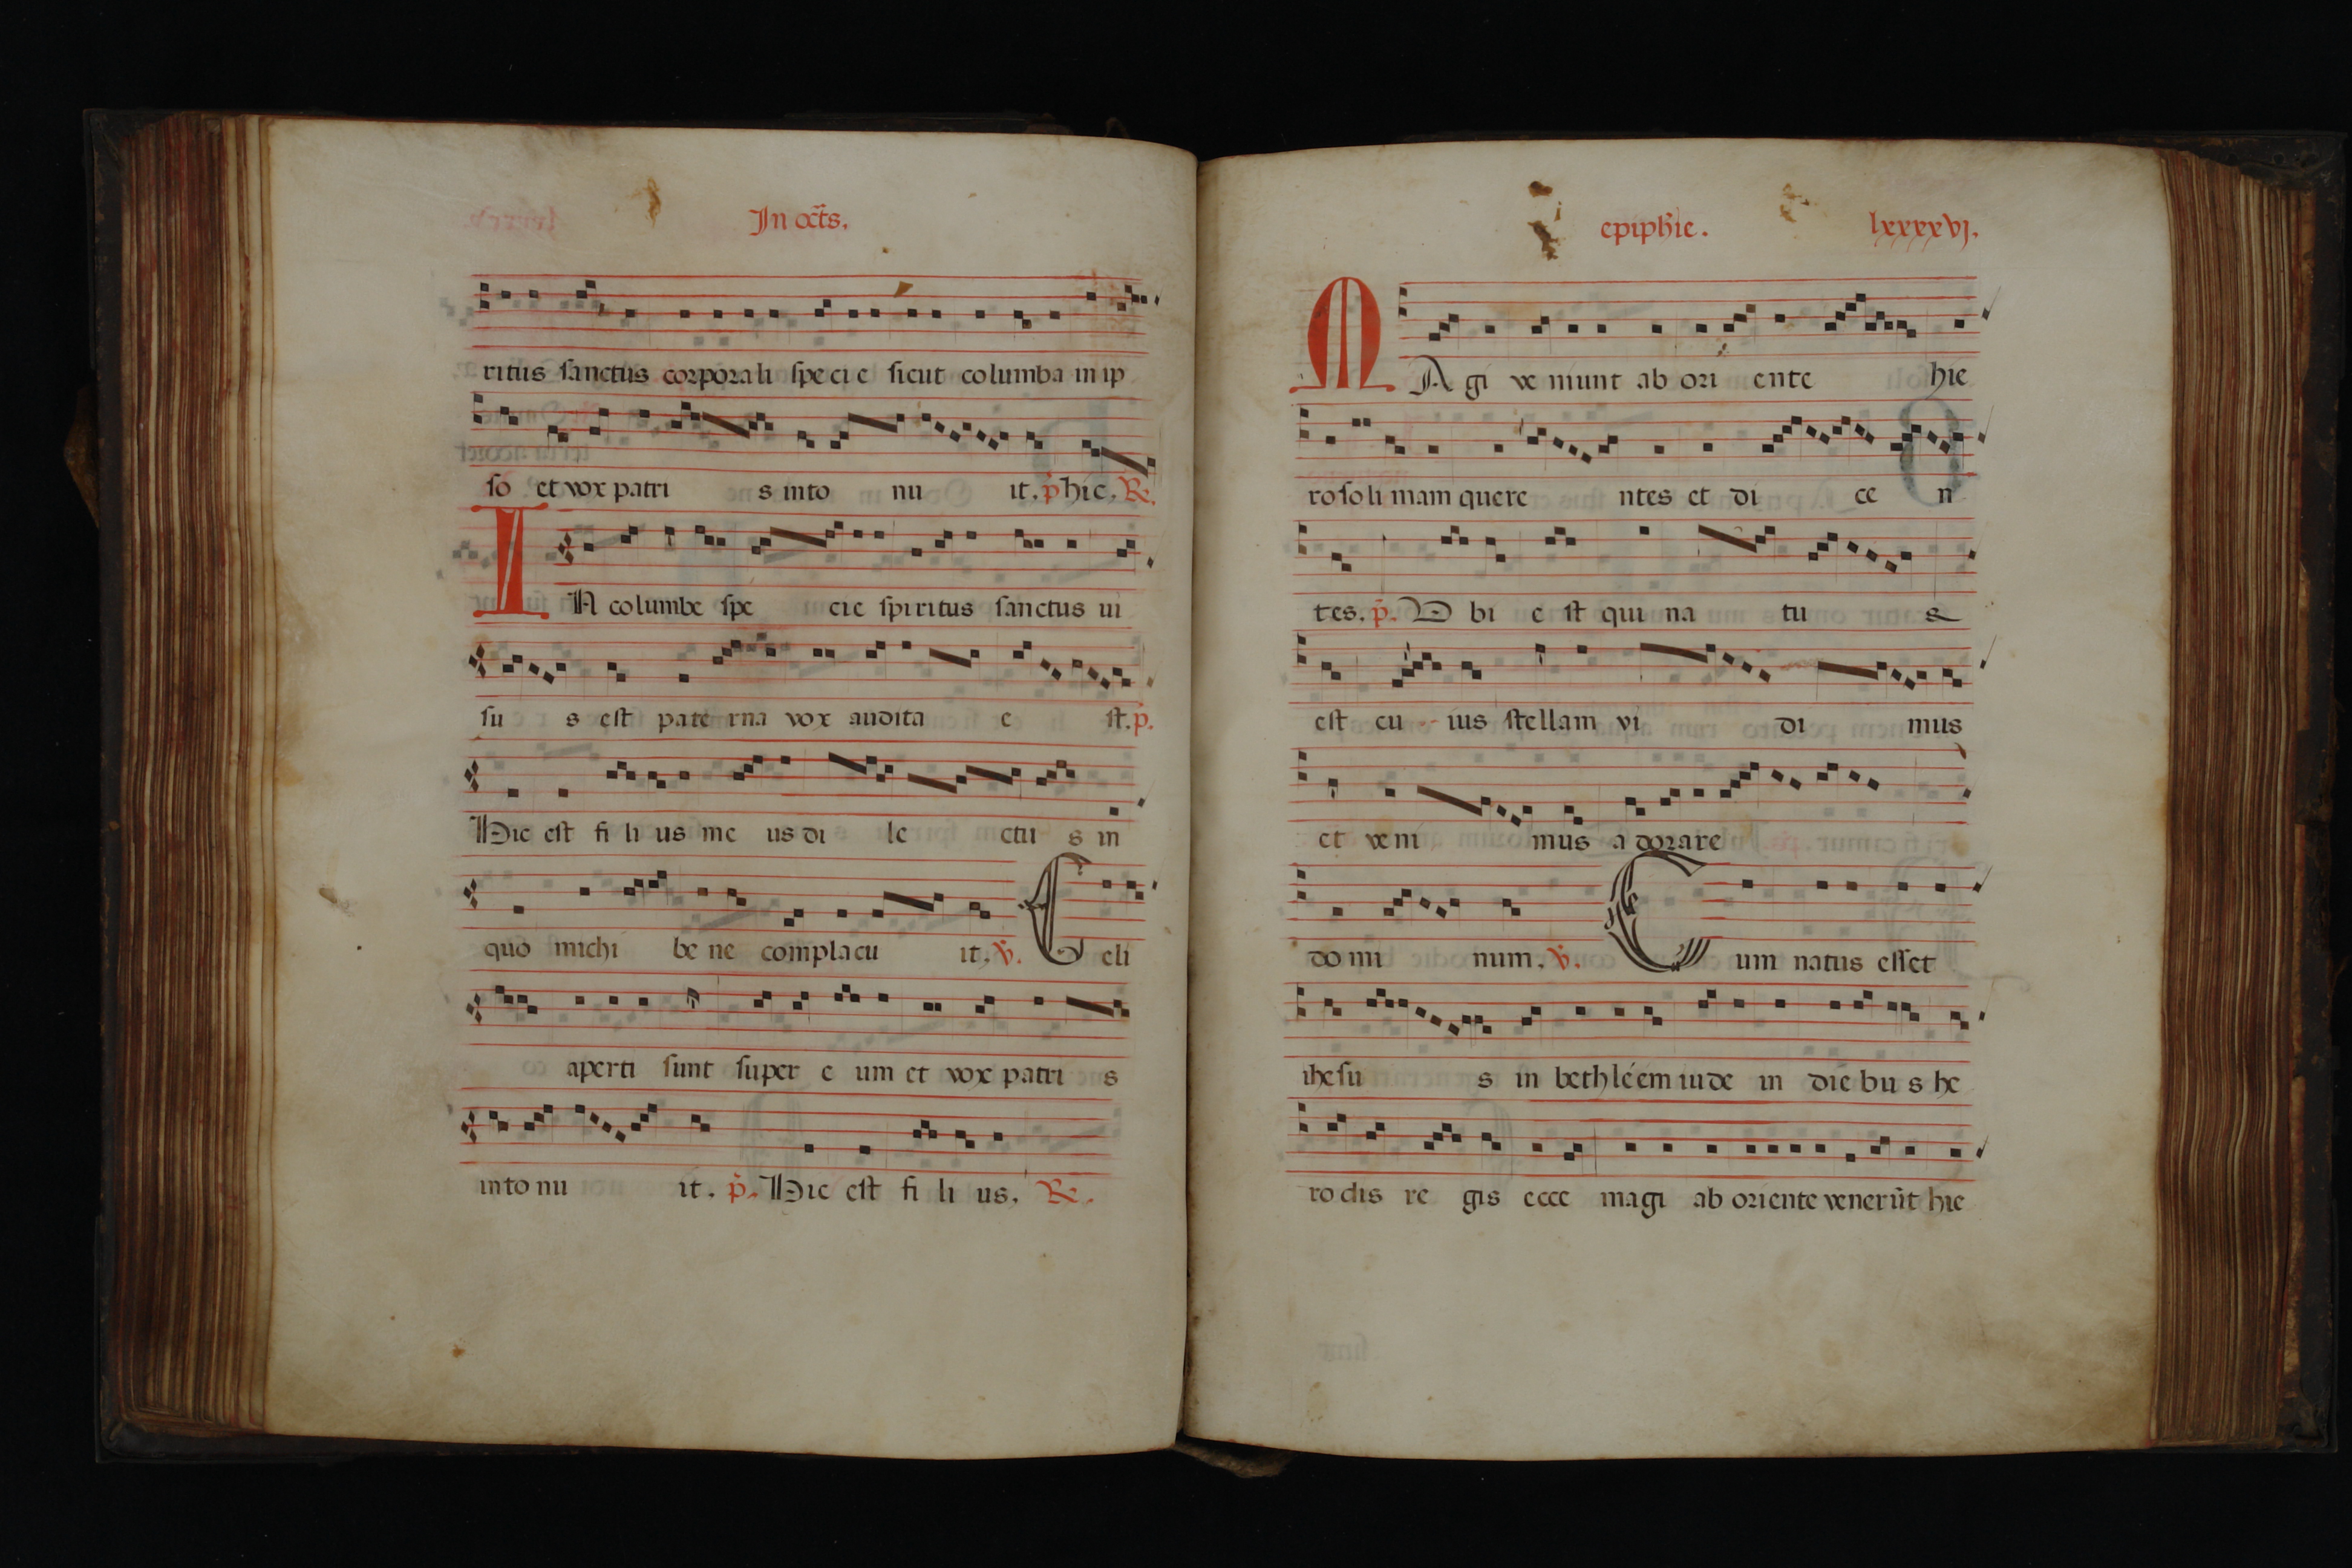 In oc̄ts.
ritus sanctus corporali specie sicut columba in ip
so et vox patri s into nu it. p̄ hic. R̄.
IN columbe spe cie spiritus sanctus ui
su s est pate rna vox audita e st. p̄.
Hic est fi li us me us di le ctu s in
quo michi be ne complacu it. v̄. Celi
aperti sunt super e um et vox patri s
into nu it. p̄. Hic est fi li us. R̄.
epiphīe. lxxxxvj.
MAgi veniunt ab ori ente hie
rosoli mam quere ntes et di ce n
tes. p̄. Vbi e st qui na tu s
est cu ius stellam vi di mus
et veni mus a dorare
domi num. v̄. Cum natus esset
ihesu s in bethléem iude in diebu s he
rodis re gis ecce magi ab oriente venerūt hie